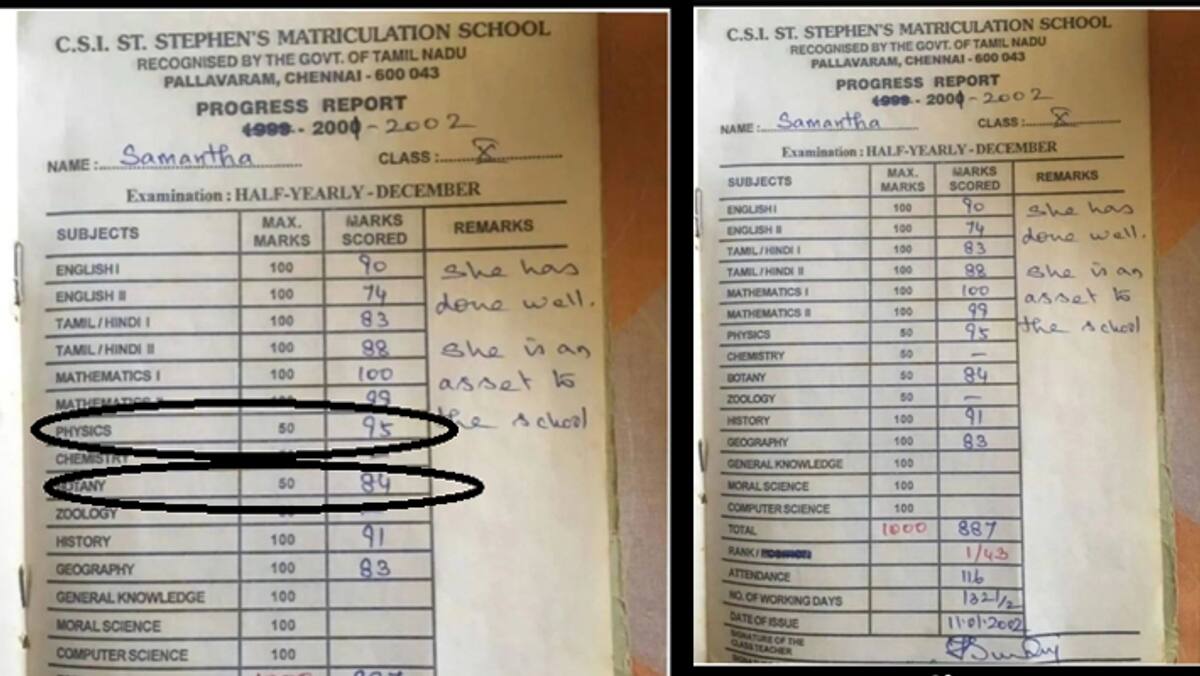 C.S.I. ST. STEPHEN'S MATRICULATION SCHOOL
RECOGNISED BY THE GOVT. OF TAMIL NADU
PALLAVARAM, CHENNAI - 600 043
PROGRESS REPORT
1999 - 2001 - 2002
NAME : Samantha CLASS : X
Examination : HALF-YEARLY - DECEMBER
SUBJECTS MAX. MARKS MARKS SCORED REMARKS
ENGLISH I 100 90 She has
ENGLISH II 100 74 done well.
TAMIL / HINDI I 100 83
TAMIL / HINDI II 100 88 She is an
MATHEMATICS I 100 100 asset to
MATHEMATICS 99
PHYSICS 50 95 the school
CHEMISTRY
BOTANY 50 84
ZOOLOGY
HISTORY 100 91
GEOGRAPHY 100 83
GENERAL KNOWLEDGE 100
MORAL SCIENCE 100
COMPUTER SCIENCE 100
C.S.I. ST. STEPHEN'S MATRICULATION SCHOOL
RECOGNISED BY THE GOVT. OF TAMIL NADU
PALLAVARAM, CHENNAI - 600 043
PROGRESS REPORT
1999 - 2001 - 2002
NAME : Samantha CLASS : X
Examination : HALF-YEARLY - DECEMBER
SUBJECTS MAX. MARKS MARKS SCORED REMARKS
ENGLISH I 100 90 She has
ENGLISH II 100 74 done well.
TAMIL / HINDI I 100 83
TAMIL / HINDI II 100 88 She is an
MATHEMATICS I 100 100 asset to
MATHEMATICS II 100 99
PHYSICS 50 95 the school
CHEMISTRY 50 —
BOTANY 50 84
ZOOLOGY 50 —
HISTORY 100 91
GEOGRAPHY 100 83
GENERAL KNOWLEDGE 100
MORAL SCIENCE 100
COMPUTER SCIENCE 100
TOTAL 1000 887
RANK / 1/43
ATTENDANCE 116
NO. OF WORKING DAYS 132 1/2
DATE OF ISSUE 11.01.2002
SIGNATURE OF THE
CLASS TEACHER